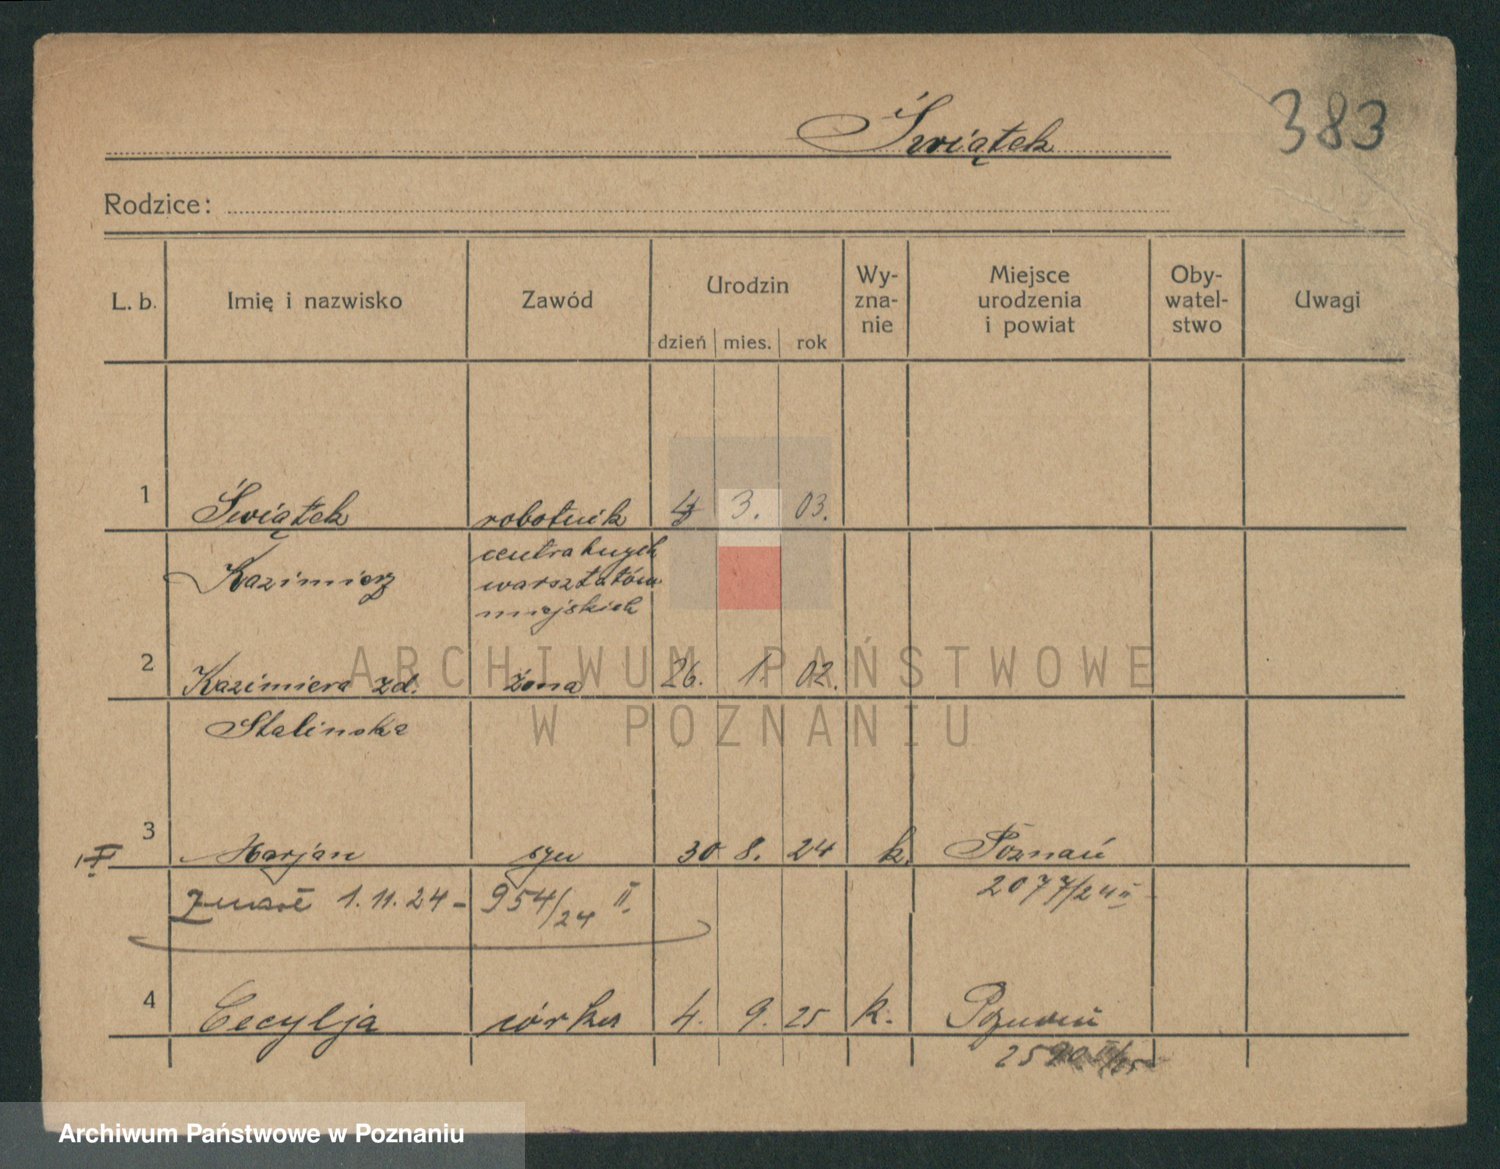 Świątek
383
Rodzice:
L. b. Imię i nazwisko Zawód Urodzin dzień mies. rok Wy-zna-nie Miejsce urodzenia i powiat Oby-watel-stwo Uwagi
1 Świątek robotnik 3. 03.
centralnych
Kazimierz warsztatów
miejskich
2 Kazimiera zd. żona 26. 1. 02.
Stalinska
3 Marjan syn 30 8. 24 k. Poznań
zmarł 1.11.24 - 954/24 II. 2077/24 II
4 Cecylja córka 4. 9. 25 k. Poznań
ARCHIWUM PAŃSTWOWE
W POZNANIU
Archiwum Państwowe w Poznaniu